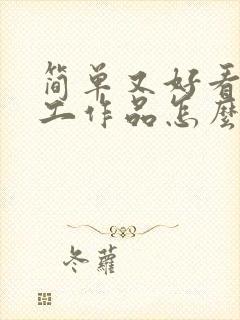 简单又好看
工作品怎麼
冬蘿